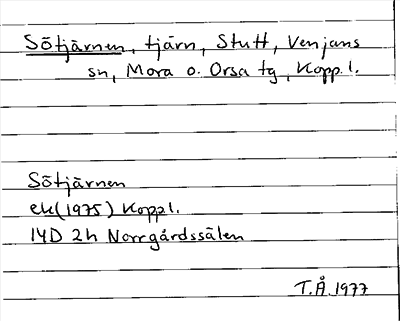 Sötjärnen, tjärn, Stutt, Venjans
sn, Mora o. Orsa tg, Kopp.l.
Sötjärnen
ek(1975) Koppl.
14D 2h Norrgårdssälen
T.Å.1977